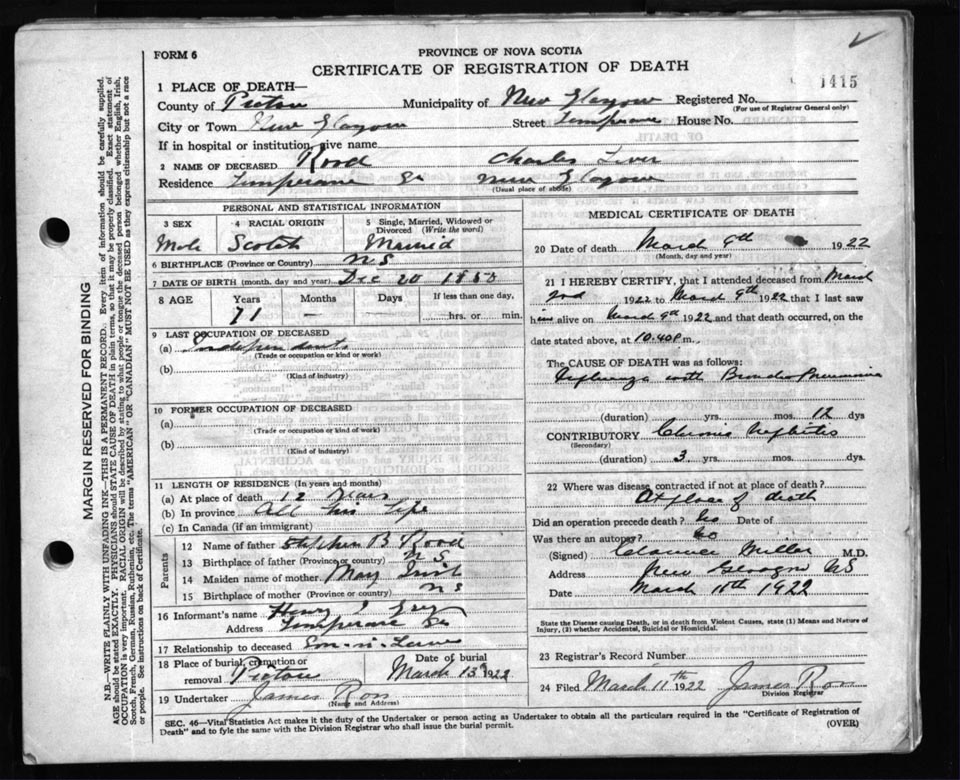 FORM 6
PROVINCE OF NOVA SCOTIA
CERTIFICATE OF REGISTRATION OF DEATH
1415
1 PLACE OF DEATH—
County of Pictou Municipality of New Glasgow Registered No.
(For use of Registrar General only)
City or Town New Glasgow Street Temperance House No.
If in hospital or institution, give name
2 NAME OF DECEASED Rood Charles
Residence Temperance St New Glasgow
(Usual place of abode)
PERSONAL AND STATISTICAL INFORMATION
3 SEX
Male
4 RACIAL ORIGIN
Scotch
5 Single, Married, Widowed or Divorced (Write the word)
Married
6 BIRTHPLACE (Province or Country) N S
7 DATE OF BIRTH (month, day and year) Dec 20
8 AGE Years Months Days If less than one day,
71 — hrs. or min.
9 LAST OCCUPATION OF DECEASED
(a)
(Trade or occupation or kind or work)
(b)
(Kind of industry)
10 FORMER OCCUPATION OF DECEASED
(a)
(Trade or occupation or kind of work)
(b)
(Kind of industry)
11 LENGTH OF RESIDENCE (In years and months)
(a) At place of death 12 Years
(b) In province All his Life
(c) In Canada (if an immigrant)
Parents
12 Name of father Stephen B Rood
13 Birthplace of father (Province or country) N S
14 Maiden name of mother Mary
15 Birthplace of mother (Province or country) N S
16 Informant's name Henry
Address Temperance St
17 Relationship to deceased Son-in-Law
18 Place of burial, cremation or removal Pictou
Date of burial
March 13th 1922
19 Undertaker James Ross
(Name and Address)
MEDICAL CERTIFICATE OF DEATH
20 Date of death March 9th 1922
(Month, day and year)
21 I HEREBY CERTIFY, that I attended deceased from March
2nd 1922 to March 9th 1922 that I last saw
him alive on March 9th 1922 and that death occurred, on the
date stated above, at 10.40 P m.
The CAUSE OF DEATH was as follows:
Influenza with Broncho Pneumonia
(duration) yrs. mos. 12 dys
CONTRIBUTORY Chronic Nephritis
(Secondary)
(duration) 3 yrs. mos. dys
22 Where was disease contracted if not at place of death?
At place of death
Did an operation precede death? No Date of
Was there an autopsy? No
(Signed) Clarence Miller M.D.
Address New Glasgow NS
Date March 11th 1922
State the Disease causing Death, or in death from Violent Causes, state (1) Means and Nature of Injury, (2) whether Accidental, Suicidal or Homicidal.
23 Registrar's Record Number
24 Filed March 11th 1922 James Ross
Division Registrar
SEC. 46—Vital Statistics Act makes it the duty of the Undertaker or person acting as Undertaker to obtain all the particulars required in the "Certificate of Registration of
Death" and to fyle the same with the Division Registrar who shall issue the burial permit.
(OVER)
MARGIN RESERVED FOR BINDING
N.B.—WRITE PLAINLY WITH UNFADING INK—THIS IS A PERMANENT RECORD. Every item of information should be carefully supplied.
AGE should be stated EXACTLY. PHYSICIANS should STATE CAUSE OF DEATH in plain terms, so that it may be properly classified. Exact statement of
OCCUPATION is very important. RACIAL ORIGIN will be described by stating to what people or tongue the deceased person belonged whether English, Irish,
Scotch, French, German, Russian, Ruthenian, etc. The terms "AMERICAN" OR "CANADIAN" MUST NOT BE USED as they express citizenship but not a race
or people. See instructions on back of Certificate.